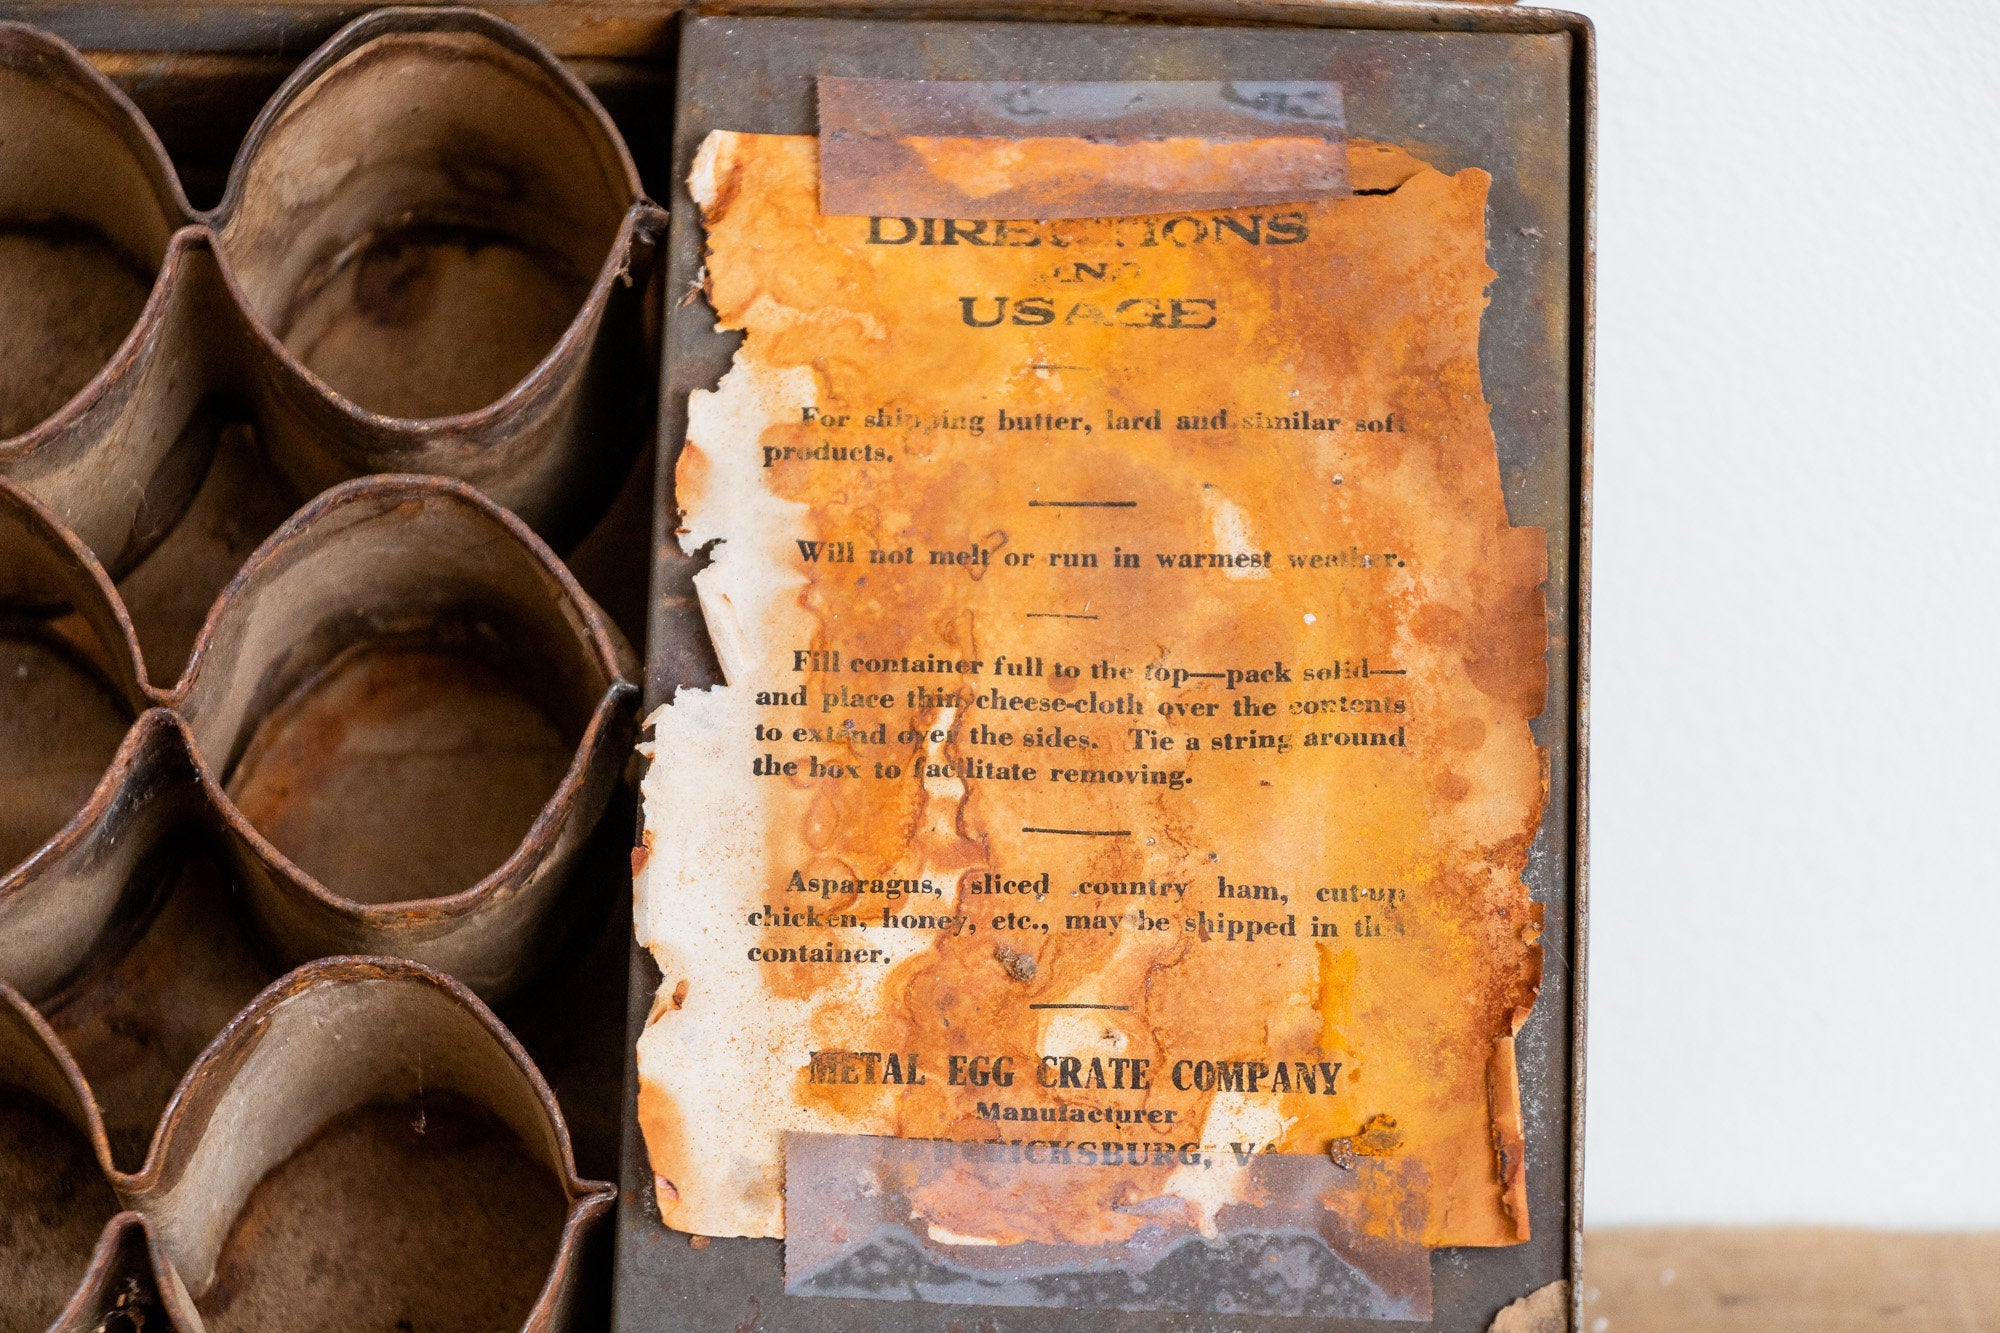 DIRECTIONS
AND
USAGE
For shipping butter, lard and similar soft
products.
Will not melt or run in warmest weather.
Fill container full to the top—pack solid—
and place thin cheese-cloth over the contents
to extend over the sides. Tie a string around
the box to facilitate removing.
Asparagus, sliced country ham, cut-up
chicken, honey, etc., may be shipped in this
container.
METAL EGG CRATE COMPANY
Manufacturer
FREDERICKSBURG, VA.